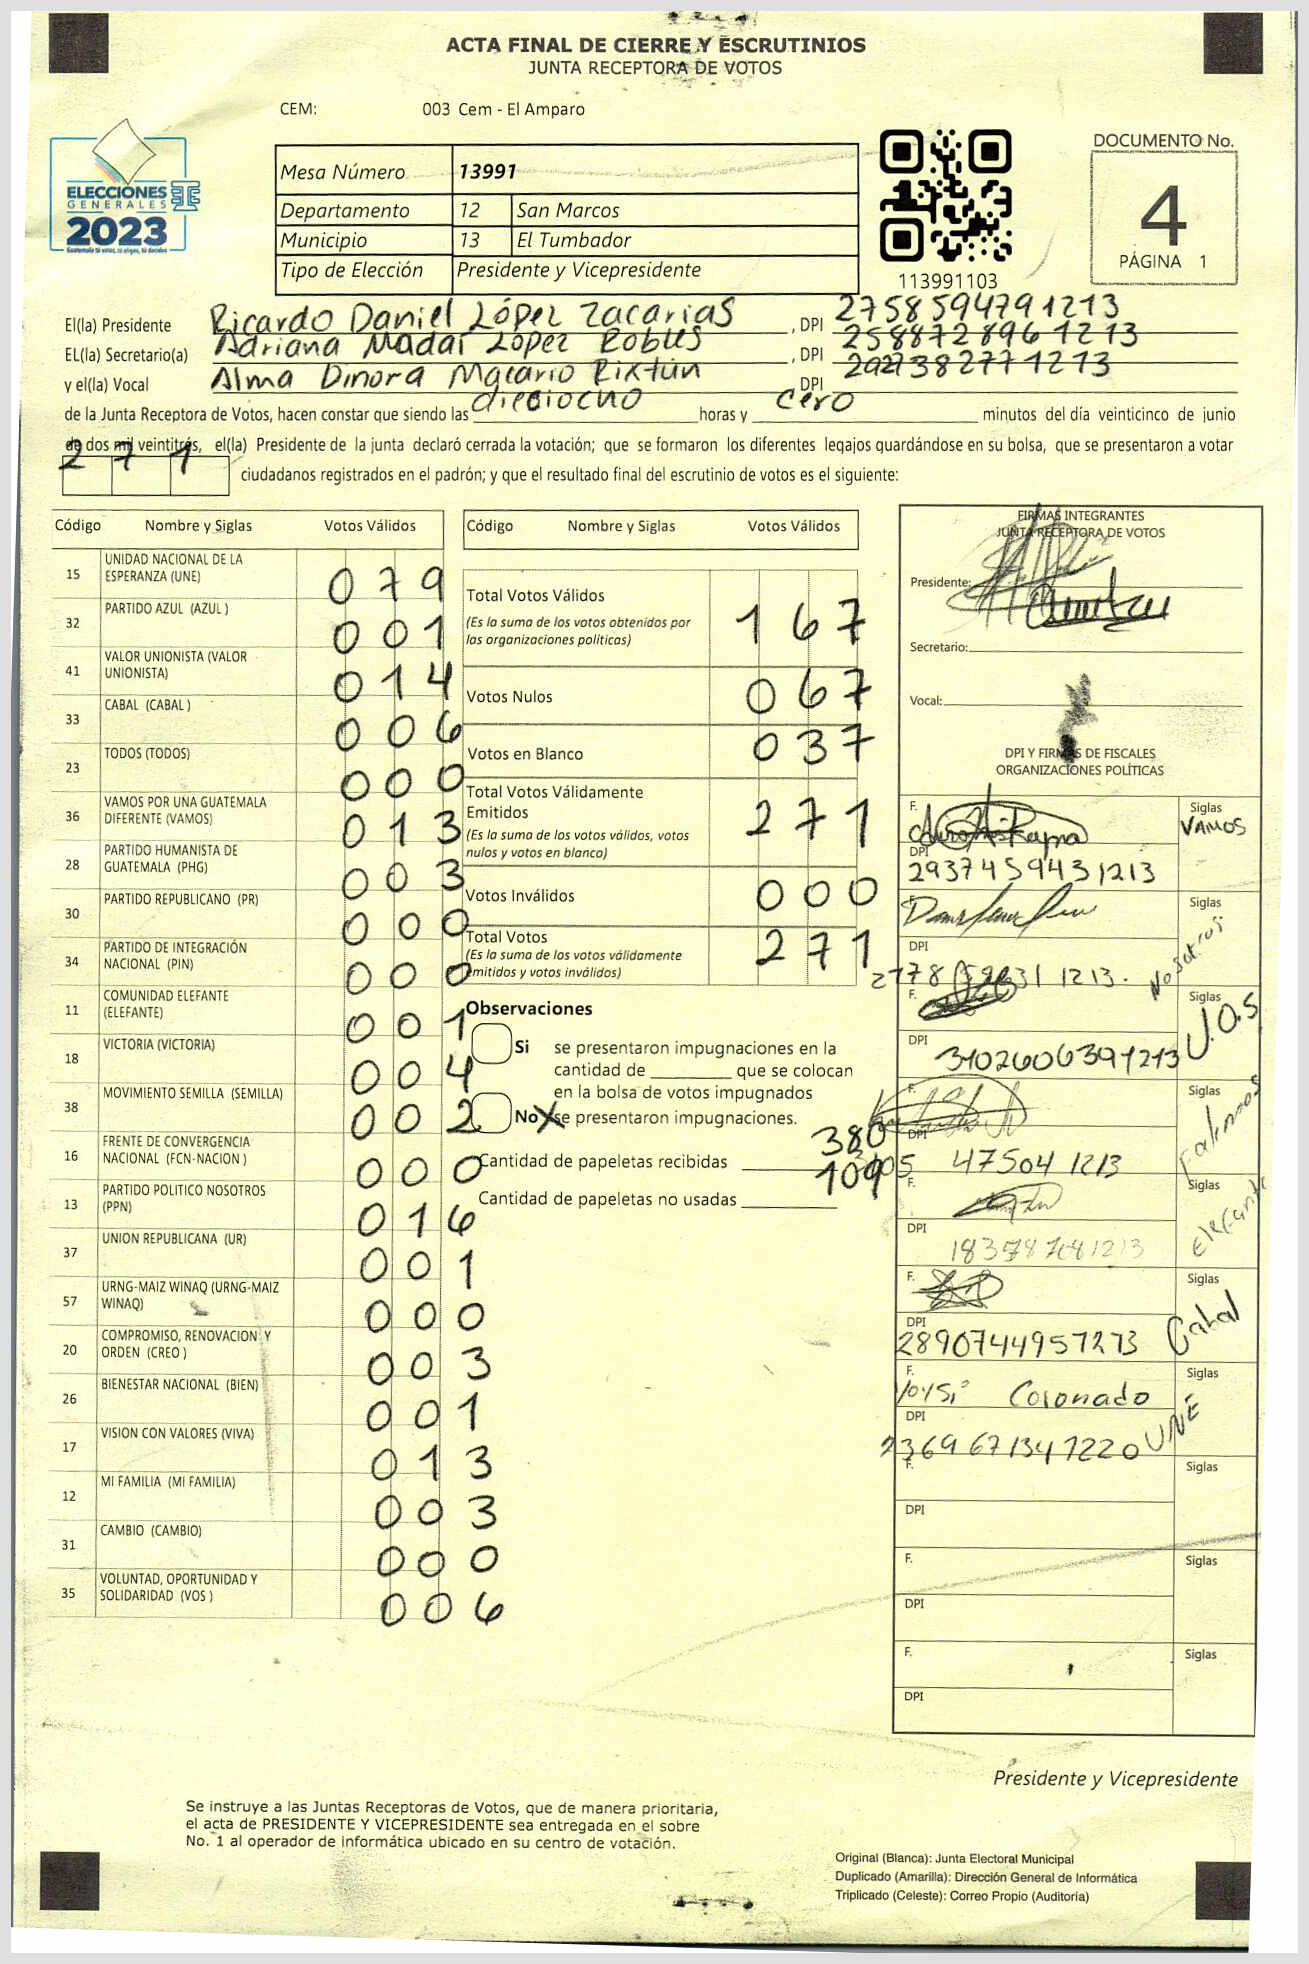 ACTA FINAL DE CIERRE Y ESCRUTINIOS
JUNTA RECEPTORA DE VOTOS
CEM: 003 Cem - El Amparo
ELECCIONES
GENERALES
2023
Mesa Número 13991
Departamento 12 San Marcos
Municipio 13 El Tumbador
Tipo de Elección Presidente y Vicepresidente
113991103
DOCUMENTO No.
4
PÁGINA 1
El(la) Presidente Ricardo Daniel López Zacarias , DPI 2758594791213
EL(la) Secretario(a) Adriana Madaí López Robles , DPI 2588728961213
y el(la) Vocal Alma Dinora Macario Rixtún DPI 2927382771213
de la Junta Receptora de Votos, hacen constar que siendo las dieciocho horas y cero minutos del día veinticinco de junio
de dos mil veintitrés, el(la) Presidente de la junta declaró cerrada la votación; que se formaron los diferentes legajos guardándose en su bolsa, que se presentaron a votar
271 ciudadanos registrados en el padrón; y que el resultado final del escrutinio de votos es el siguiente:
Código Nombre y Siglas Votos Válidos
15 UNIDAD NACIONAL DE LA ESPERANZA (UNE) 079
32 PARTIDO AZUL (AZUL ) 001
41 VALOR UNIONISTA (VALOR UNIONISTA) 014
33 CABAL (CABAL ) 006
23 TODOS (TODOS) 000
36 VAMOS POR UNA GUATEMALA DIFERENTE (VAMOS) 013
28 PARTIDO HUMANISTA DE GUATEMALA (PHG) 003
30 PARTIDO REPUBLICANO (PR) 000
34 PARTIDO DE INTEGRACIÓN NACIONAL (PIN) 000
11 COMUNIDAD ELEFANTE (ELEFANTE) 001
18 VICTORIA (VICTORIA) 004
38 MOVIMIENTO SEMILLA (SEMILLA) 002
16 FRENTE DE CONVERGENCIA NACIONAL (FCN-NACION ) 000
13 PARTIDO POLITICO NOSOTROS (PPN) 016
37 UNION REPUBLICANA (UR) 001
57 URNG-MAIZ WINAQ (URNG-MAIZ WINAQ) 000
20 COMPROMISO, RENOVACION Y ORDEN (CREO ) 003
26 BIENESTAR NACIONAL (BIEN) 001
17 VISION CON VALORES (VIVA) 013
12 MI FAMILIA (MI FAMILIA) 003
31 CAMBIO (CAMBIO) 000
35 VOLUNTAD, OPORTUNIDAD Y SOLIDARIDAD (VOS ) 006
Código Nombre y Siglas Votos Válidos
Total Votos Válidos 167
(Es la suma de los votos obtenidos por
las organizaciones políticas)
Votos Nulos 067
Votos en Blanco 037
Total Votos Válidamente
Emitidos 271
(Es la suma de los votos válidos, votos
nulos y votos en blanco)
Votos Inválidos 000
Total Votos 271
(Es la suma de los votos válidamente
emitidos y votos inválidos)
Observaciones
Si se presentaron impugnaciones en la
cantidad de que se colocan
en la bolsa de votos impugnados
No X se presentaron impugnaciones.
Cantidad de papeletas recibidas 380
Cantidad de papeletas no usadas 109
FIRMAS INTEGRANTES
JUNTA RECEPTORA DE VOTOS
Presidente:
Secretario:
Vocal:
DPI Y FIRMAS DE FISCALES
ORGANIZACIONES POLÍTICAS
F. Siglas
VAMOS
DPI
2937459431213
F. Siglas
Nosotros
DPI
F. Siglas
V.O.S
DPI
3102606391213
F. Siglas
DPI
47504 1213
F. Siglas
Elefante
DPI
F. Siglas
Cabal
DPI
2890744951213
F. Siglas
Coronado
UNE
DPI
2369671341220
F. Siglas
DPI
F. Siglas
DPI
F. Siglas
DPI
Presidente y Vicepresidente
Se instruye a las Juntas Receptoras de Votos, que de manera prioritaria,
el acta de PRESIDENTE Y VICEPRESIDENTE sea entregada en el sobre
No. 1 al operador de informática ubicado en su centro de votación.
Original (Blanca): Junta Electoral Municipal
Duplicado (Amarilla): Dirección General de Informática
Triplicado (Celeste): Correo Propio (Auditoría)